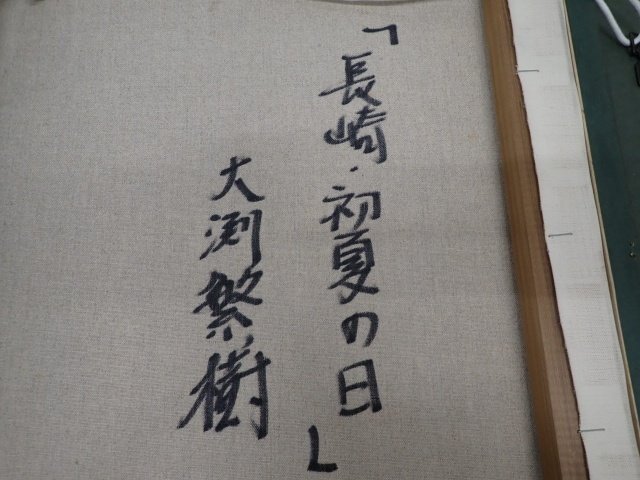 「長崎・初夏の日」
大渕繁樹